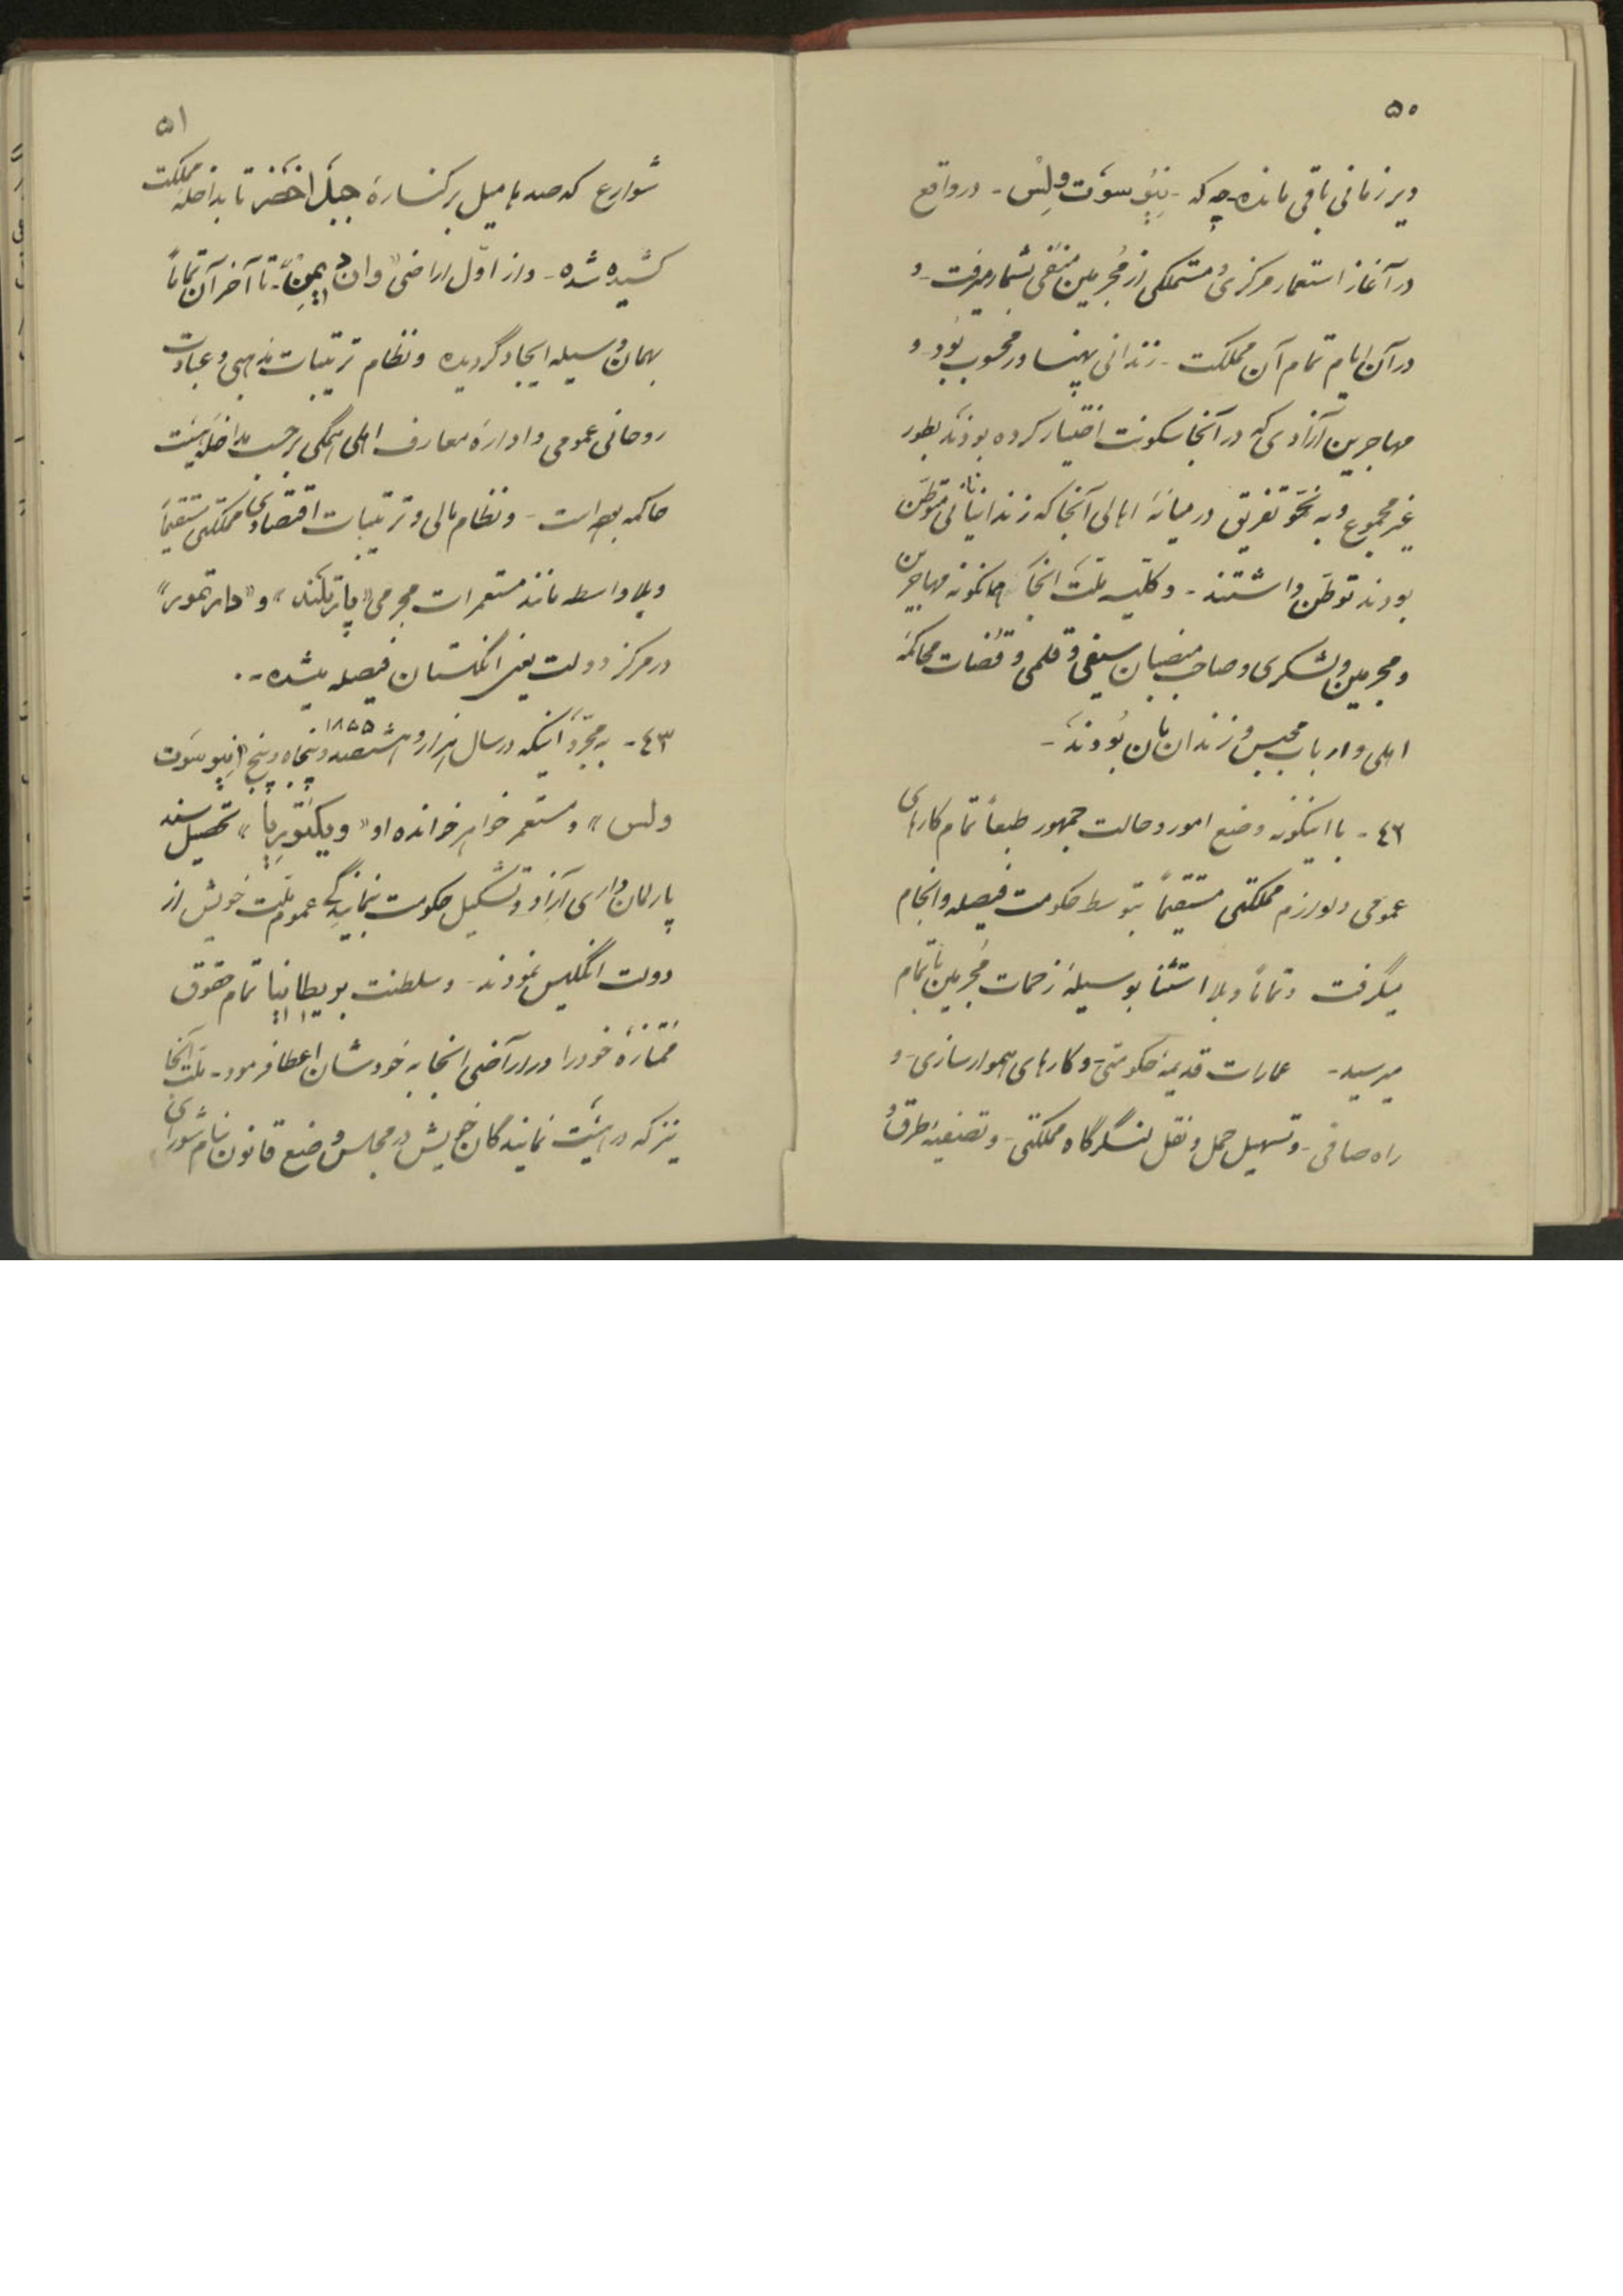 ۵۰
دیر زمانی باقی مانده چه که - نیو سوت ولس - در واقع
در آغاز استعمار مرکزی و متملکی از مجرمین منفی بشمار میرفت - و
در آن ایام تمام آن مملکت - زندانی پهناور محسوب بود - و
مهاجرین آزادی که در آنجا سکونت اختیار کرده بودند بطور
غیر مجموع و به نحو تفریق در میانهٔ اهالی آنجا که زندانیانی متوطن
بودند توطن داشتند - و کلیه ملت آنجا همانگونه مهاجرین
و مجرمین و لشکری و صاحب منصبان سیفی و قلمی و قضات محاکمه
اهلی و ارباب محبس و زندان بان بودند -
٤٣ - با اینگونه وضع امور و حالت جمهور طبعاً تمام کارهای
عمومی و لوازم مملکتی مستقیماً بتوسط حکومت فیصله و انجام
میگرفت و تماماً و بلا استثنا بوسیلهٔ زحمات مجرمین باتمام
میرسید - عمارات قدیمه حکومتی - و کارهای هموار سازی - و
راه صافی - و تسهیل حمل و نقل لنگرگاه مملکتی - و تصفیهٔ طرق و
۵۱
شوارع که صدها میل بر کنارهٔ جبل اخضر تا بداخلهٔ مملکت
کشیده شده - و از اول اراضی «وان دیمن» تا آخر آن تماماً
بهمان وسیله ایجاد گردیده و نظام ترتیبات مذهبی و عبادت
روحانی عمومی و ادارهٔ معارف اهلی همگی بر حسب مداخله هیئت
حاکمه بوده است - و نظام مالی و ترتیبات اقتصادی مملکتی مستقیماً
و بلا واسطه مانند مستعمرات مجرمی «پارتلند» و «دارتمور»
در مرکز دولت یعنی انگلستان فیصله میشده -
٤٣ - به مجرد اینکه در سال هزار و هشتصد و پنجاه و پنج ۱۸۵۵ «نیو سوت
ولس» و مستعمر خواهر خوانده او «ویکتوریا» تحصیل سند
پارلمان داری آزاد و تشکیل حکومت بنمایندگی عموم ملت خویش از
دولت انگلیس نمودند - و سلطنت بریطانیا تمام حقوق
ممتازهٔ خود را در اراضی انجا به خودشان اعطا فرمود - ملت آنجا
نیز که در هیئت نمایندگان خویش در مجلس وضع قانون بنام شورای